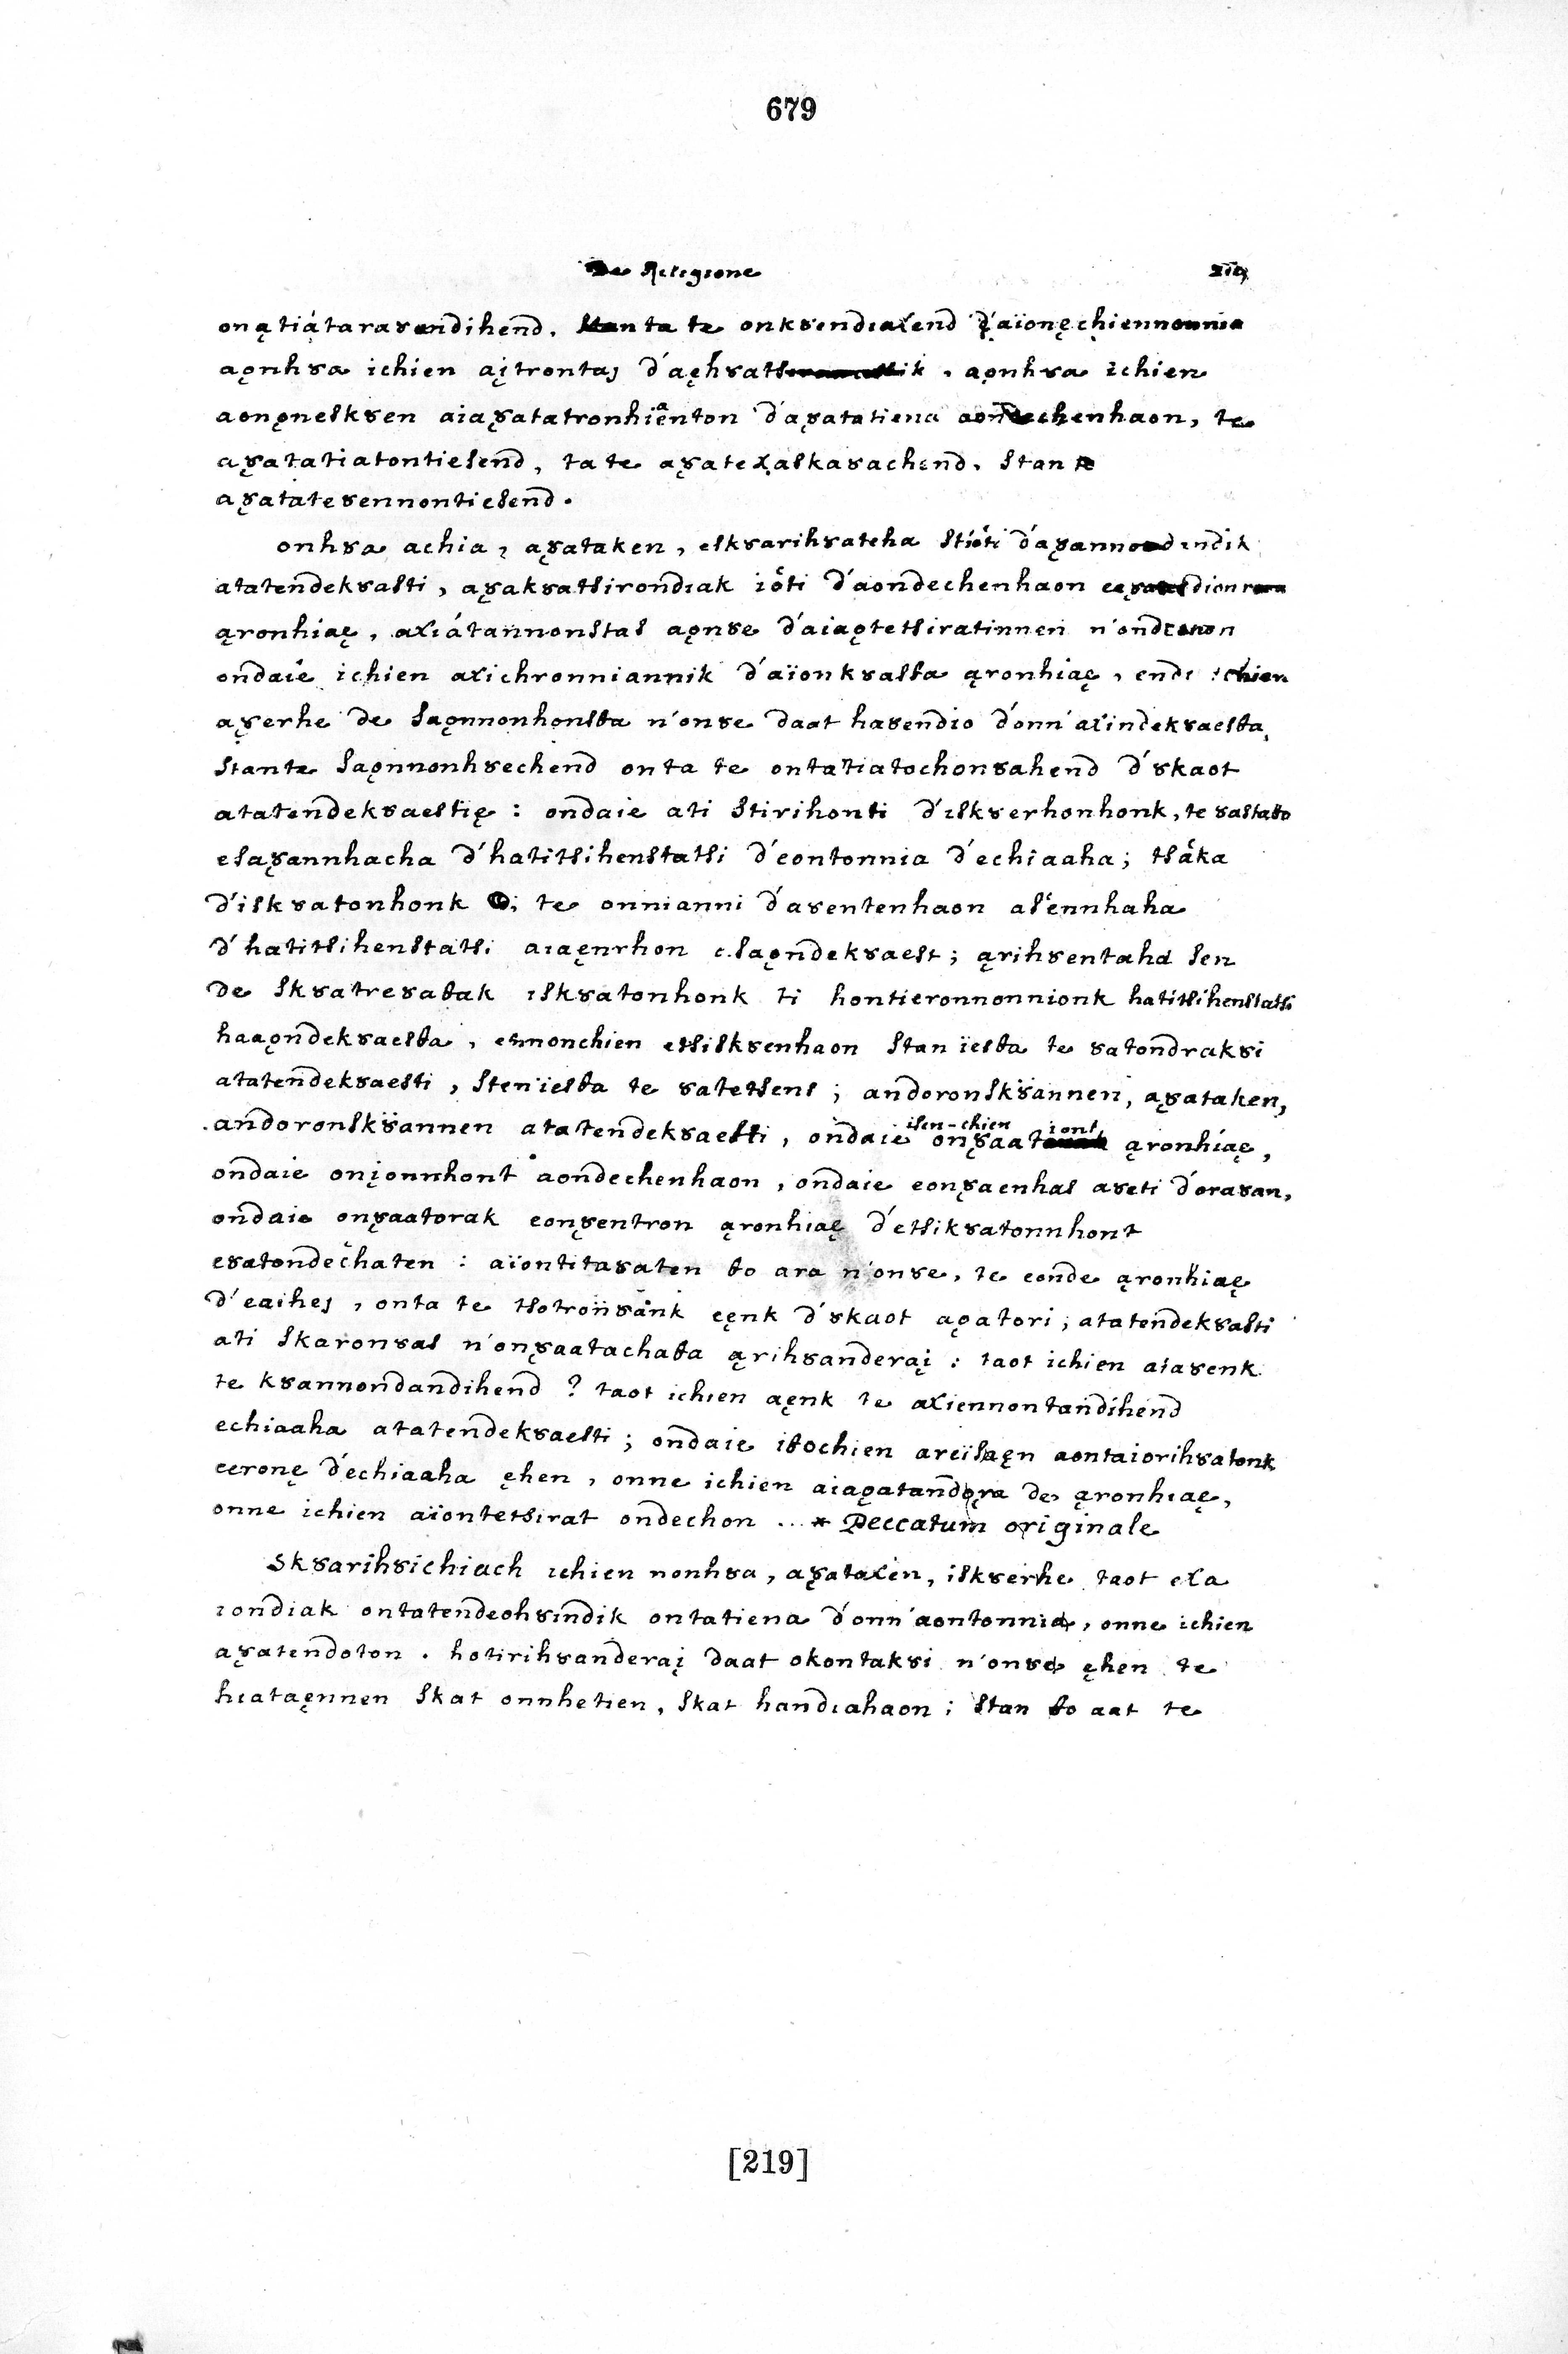 679
De Religione 219
onątiątarasȣandihend. Stan ta te onkȣendiaxend d'aïonęchiennonnia
aǫnhȣa ichien aįtrontaj d'aęhȣats ik. aǫnhȣa ichien
aonǫneskȣen aiaȣ̨atatronhiaenton d'aȣ̨atatiena aondechenhaon, te
aȣ̨atatiatontiesend, ta te aȣ̨atexaskaȣachend. stan te
aȣ̨atateȣennontiesend.
onhȣa achia, aȣ̨ataken, eskȣarihȣateha stiöti d'aȣ̨annondindik
atatendekȣasti, aȣ̨akȣatsirondiak iöti d'aondechenhaon
ąronhiaę, axiátannonstas aǫnȣe d'aiaǫtetsiratinnen n'ondechon
ondaie ichien axichronniannik d'aïonkȣasθa ąronhiaę, ende ichien
aȣ̨erhe de saǫnnonhonsθa n'onȣe daat haȣendio d'onn'axindekȣaesθa,
stante saǫnnonhȣechend onta te ontatiatochonȣahend d'ȣkaot
atatendekȣaestię : ondaie ati stirihonti d'iskȣerhonhonk, te ȣastaθo
esaȣ̨annhacha d'hatitsihenstatsi d'eontonnia d'echiaaha; tsäka
d'iskȣatonhonk te onnianni d'aȣentenhaon as'ennhaha
d'hatitsihenstatsi aiaęnrhon esaǫndekȣaest; ąrihȣentaha sen
de skȣatreȣaθak iskȣatonhonk ti hontieronnonnionk hatitsihenstatsi
haaǫndekȣaesθa, ennonchien etsiskȣenhaon stan ïesθa te ȣatondrakȣi
atatendekȣaesti, sten ïesθa te ȣatetsens; andoronskȣannen, aȣ̨ataken,
andoronskȣannen atatendekȣaesti, ondaie isen-chien onȣ̨aationt ąronhiaę,
ondaie onįonnhont aondechenhaon, ondaie eonȣ̨aenhas aȣeti d'oraȣan,
ondaie onȣ̨aatorak eonȣ̨entron ąronhiaę d'etsikȣatonnhont
eȣatondechaten : aïontitaȣaten θo ara n'onȣe, te eonde ąronhiaę
d'eaihej, onta te tsotronȣänk eęnk d'ȣkaot aǫatori; atatendekȣasti
ati skaronȣas n'onȣ̨aatachaθa ąrihȣanderaį : taot ichien aiaȣenk
te kȣannondandihend ? taot ichien aęnk te axiennontandihend
echiaaha atatendekȣaesti; ondaie iθochien areïsaęn aontaiorihȣatonk
eeronę d'echiaaha ęhen, onne ichien aiaǫatandǫra de ąronhiaę,
onne ichien aïontetsirat ondechon ... * Peccatum originale
Skȣarihȣichiach ichien nonhȣa, aȣ̨ataxen, iskȣerhe taot exa
iondiak ontatendeohȣindik ontatiena d'onn'aontonnia, onne ichien
aȣ̨atendoton. hotirihȣanderaį daat okontakȣi n'onȣe ęhen te
hiataęnnen skat onnhetien, skat handiahaon; stan θo aat te
[219]